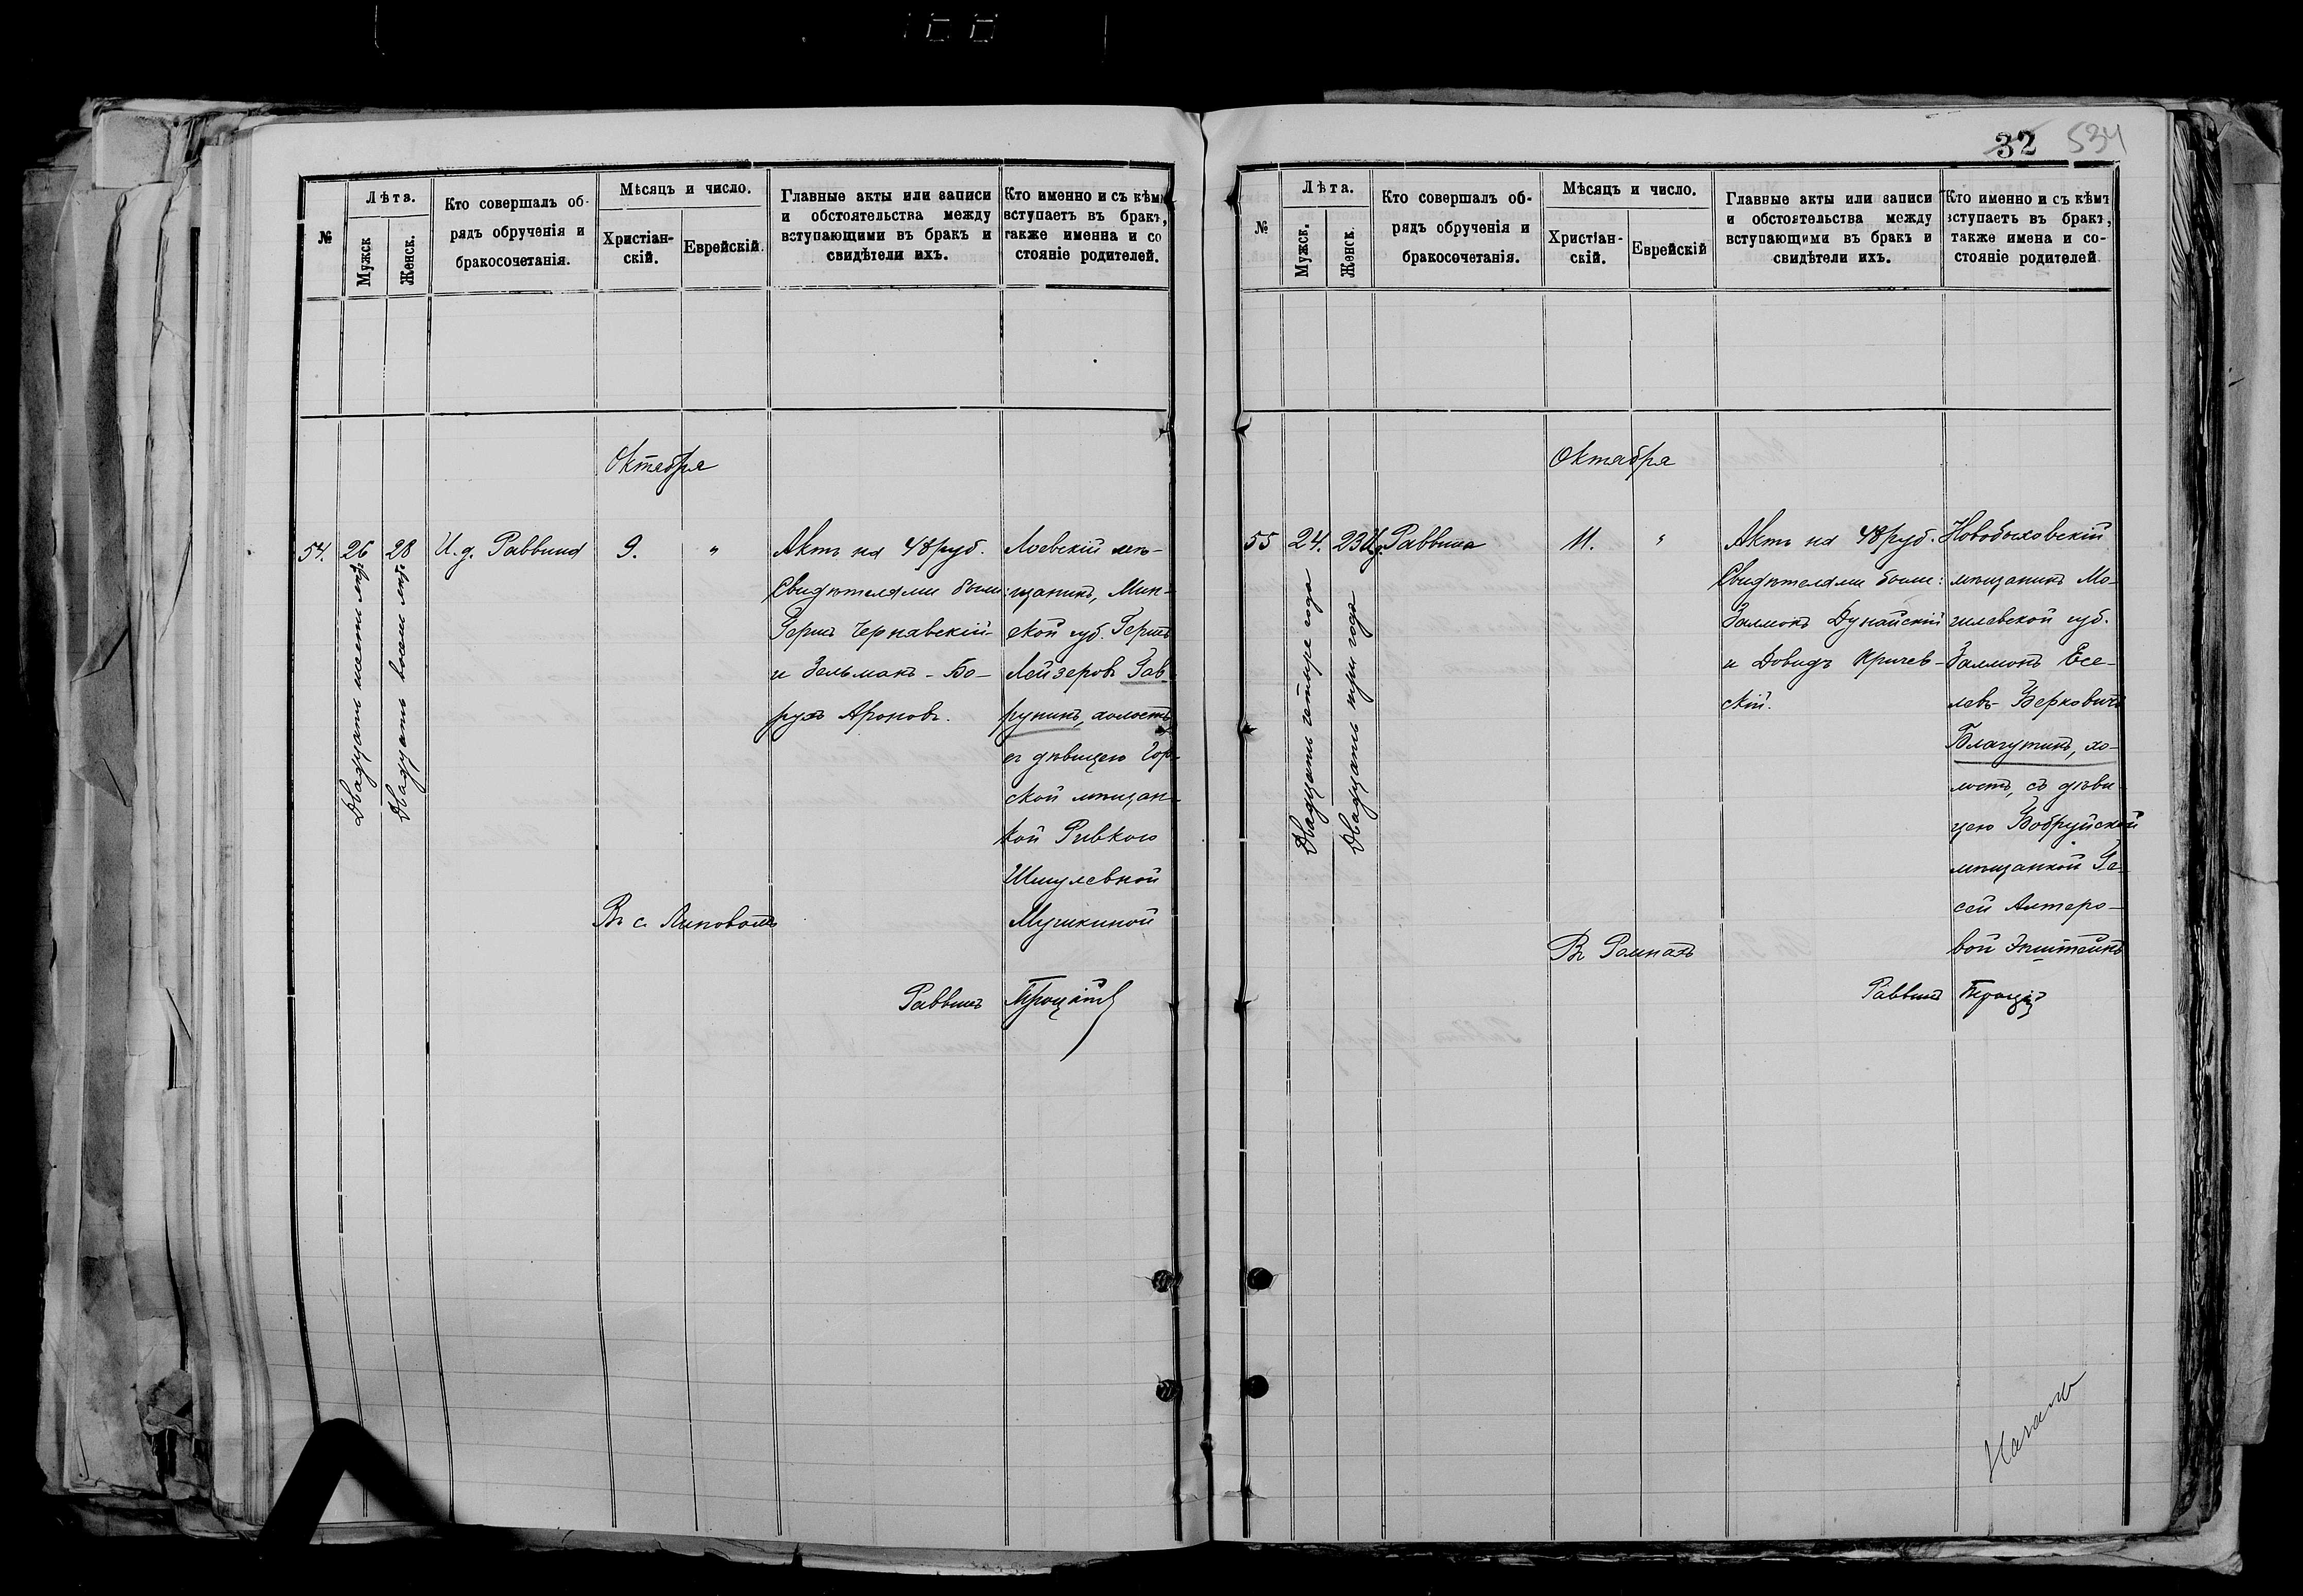 №
Лѣта.
Мужск
Женск.
Кто совершалъ об-
рядъ обрученія и
бракосочетанія.
Мѣсяцъ и число.
Христіан-
скій.
Еврейскій.
Главные акты или записи
и обстоятельства между
вступающими въ бракъ и
свидѣтели ихъ.
Кто именно и съ кѣмъ
вступаетъ въ бракъ,
также именна и со
стояніе родителей.
Октября
54.
26
Двадцать шесть лѣтъ
28
Двадцать восем лѣтъ
И. д. Раввина
9.
"
Актъ на 48 руб.
Свидѣтелями были:
Герш Чернявскій
и Зельманъ - Бо-
рухъ Ароновъ.
Лоевскій мѣ-
щанинъ, Мин-
ской губ. Гершъ
Лейзеровъ Гав-
рунинъ, холостъ
съ дѣвицею Гор-
ской мѣщан-
кой Ривкою
Шмулевной
Мушкиной
Въ с. Липовомъ
Раввинъ
32
534
№
Лѣта.
Мужск.
Женск.
Кто совершалъ об-
рядъ обрученія и
бракосочетанія.
Мѣсяцъ и число.
Христіан-
скій.
Еврейскій
Главные акты или записи
и обстоятельства между
вступающими въ бракъ и
свидѣтели ихъ.
Кто именно и съ кѣмъ
вступаетъ въ бракъ,
также имена и со-
стояніе родителей
Октября
55
24.
Двадцать четыре года
23
Двадцать три года
И. д. Раввина
11.
"
Актъ на 48 руб.
Свидѣтелями были:
Залмонъ Дунайскій
и Довидъ Кричев-
скій.
Новобыховскій
мѣщанинъ Мо-
гилевской губ.
Залмонъ Есе-
левъ-Берковичъ
Благутинъ, хо-
лостъ, съ дѣви-
цею Бобруйской
мѣщанкой Ге-
сей Алтеро-
вой Эпштейнъ
Въ Ромнахъ
Раввинъ